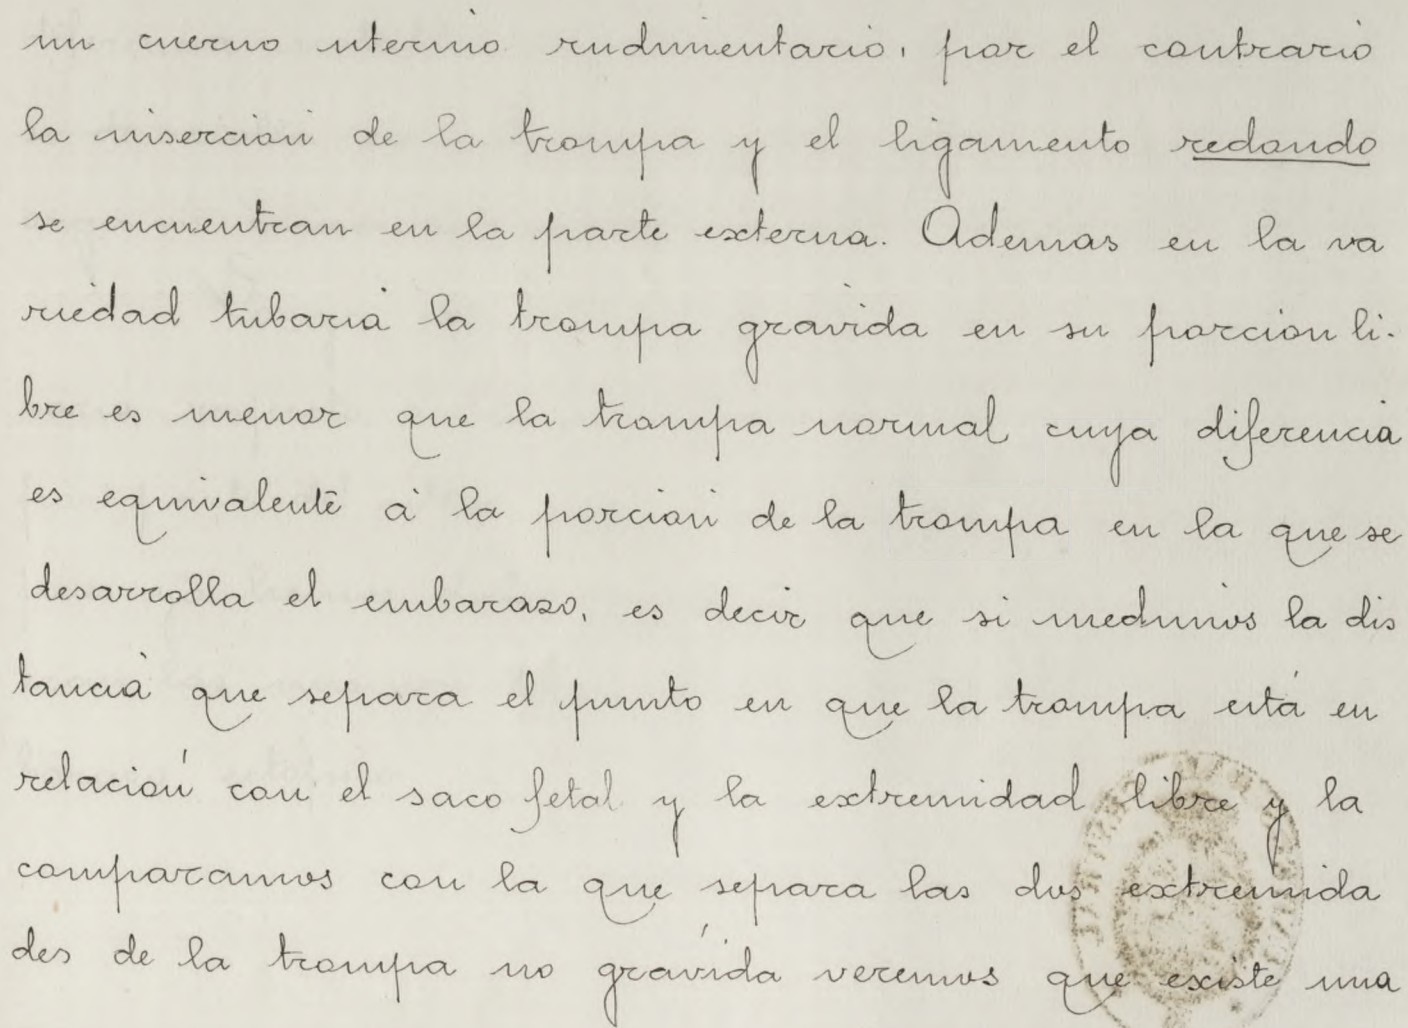 un cuerno uterino rudimentario, por el contrario
la inserción de la trompa y el ligamento redondo
se encuentran en la parte externa. Ademas en la va
riedad tubaria la trompa gravida en su porcion li-
bre es menor que la trompa normal cuya diferencia
es equivalente á la porción de la trompa en la que se
desarrolla el embarazo, es decir que si medimos la dis
tancia que separa el punto en que la trompa está en
relación con el saco fetal y la extremidad libre y la
comparamos con la que separa las dos extremida
des de la trompa no gravida veremos que existe una